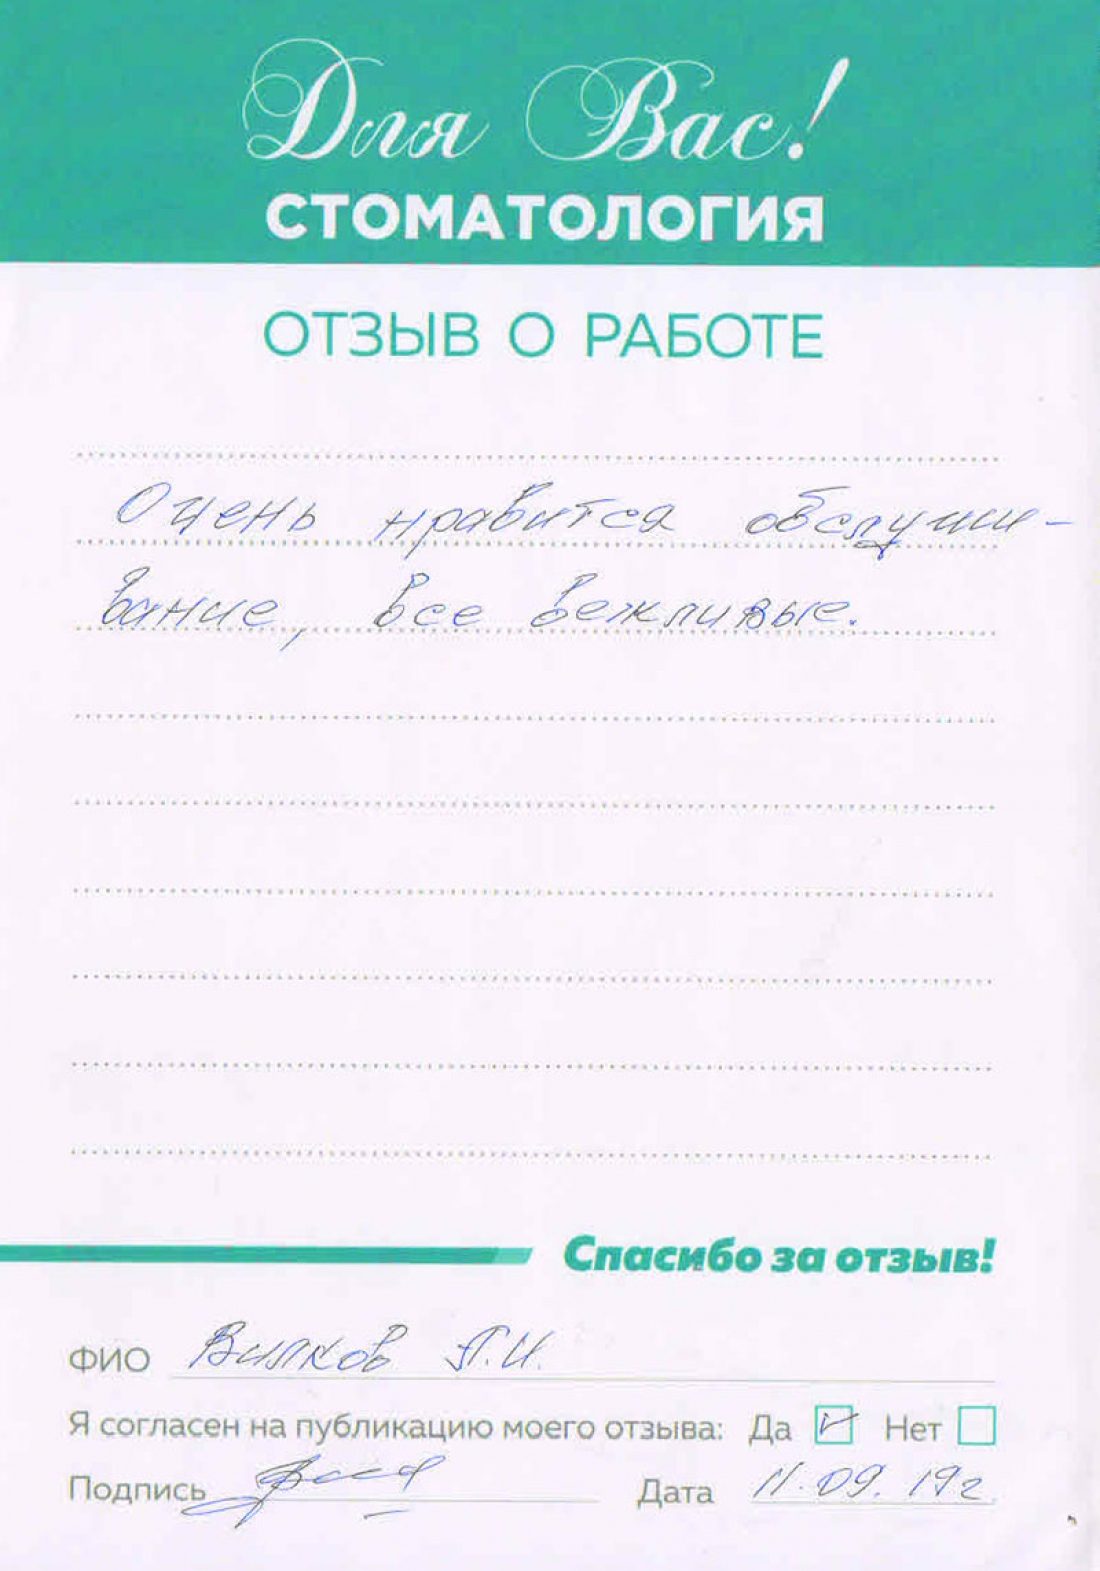 Для Вас!
СТОМАТОЛОГИЯ
ОТЗЫВ О РАБОТЕ
Очень нравится обслужи-
вание, все вежливые.
Спасибо за отзыв!
ФИО Вилков П.И.
Я согласен на публикацию моего отзыва: Да Нет
Подпись Дата 11.09.19г.